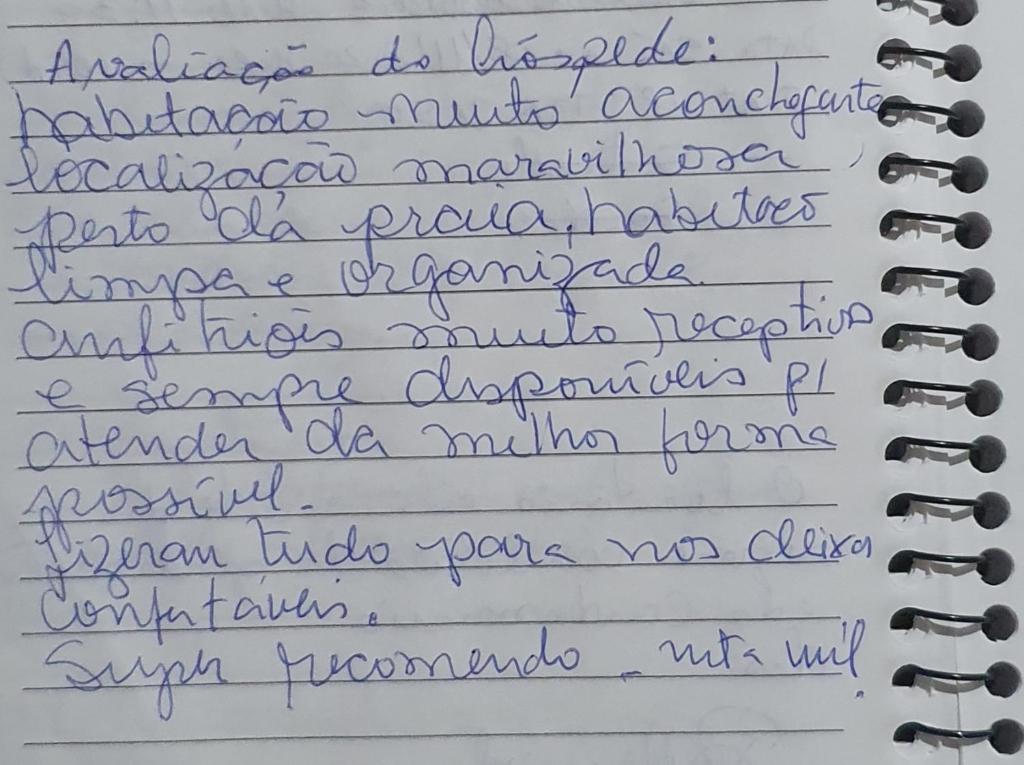 Avaliação do hóspede:
habitação muito aconchegante
localização maravilhosa,
perto da praia, habitação
limpa e organizada.
anfitriões muito receptivos
e sempre disponíveis p/
atender da melhor forma
possível.
fizeram tudo para nos deixar
confortáveis.
Super recomendo - nota mil.